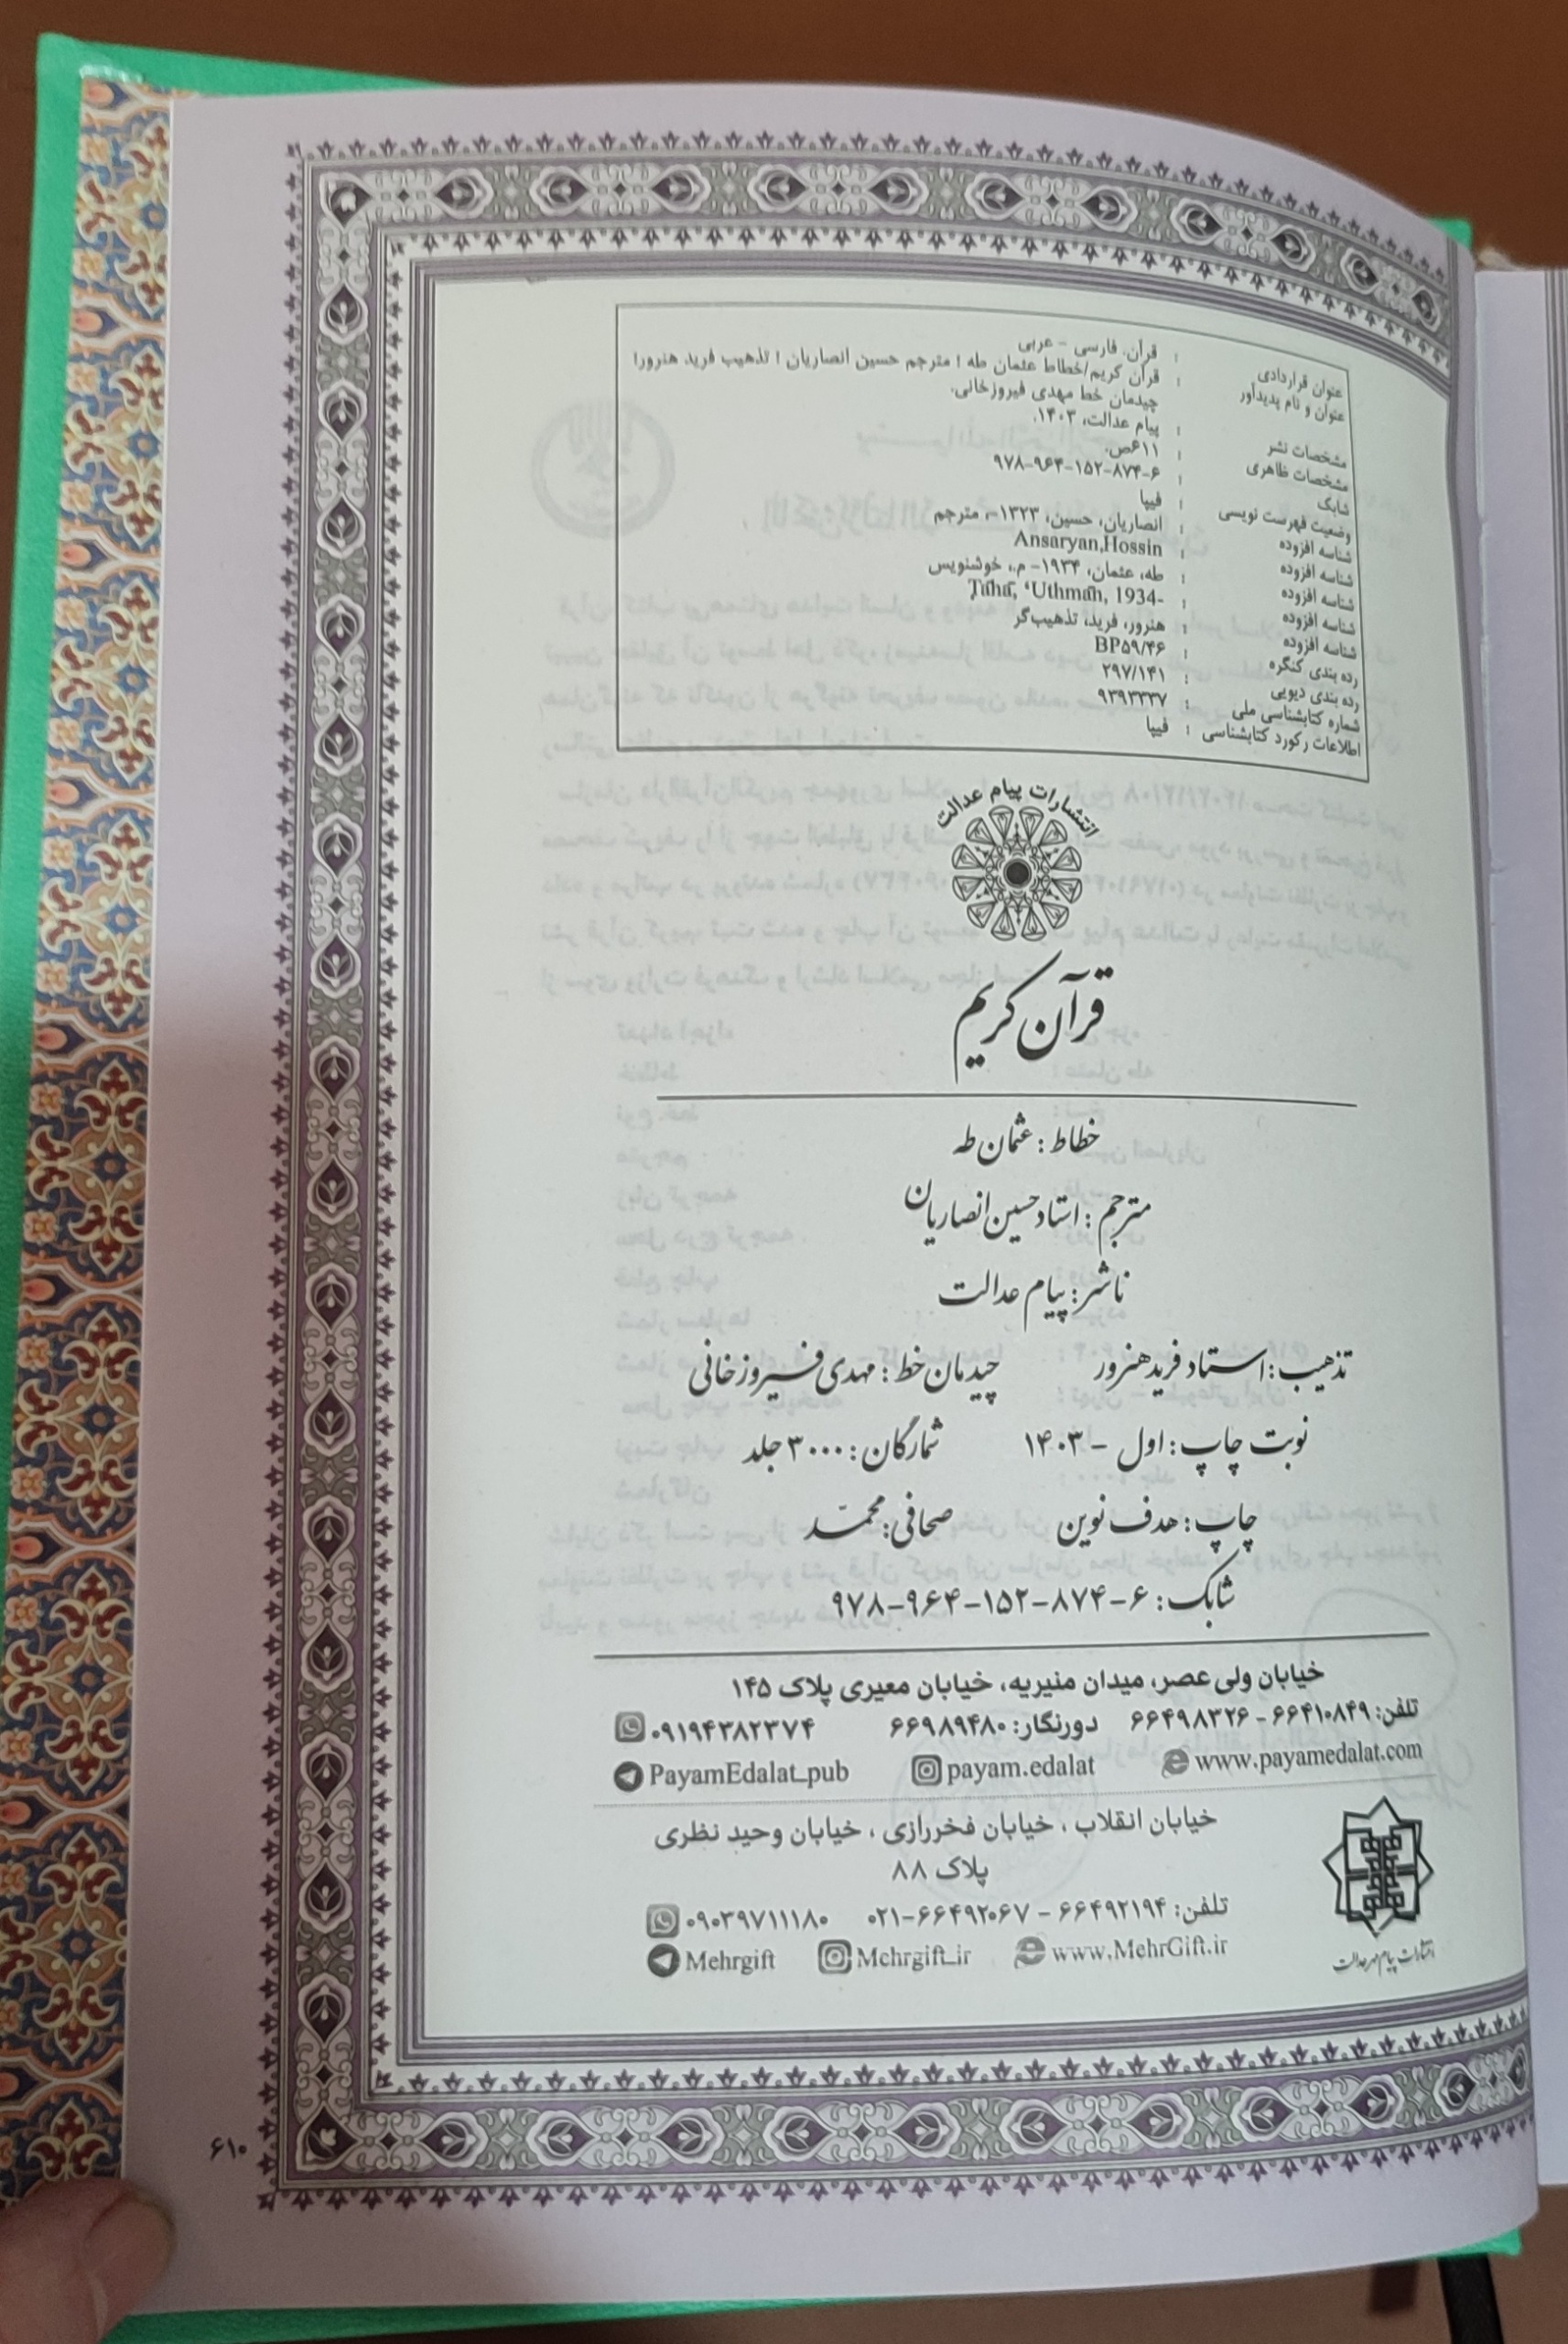 عنوان قراردادی : قرآن. فارسی - عربی
عنوان و نام پدیدآور : قرآن کریم/خطاط عثمان طه ؛ مترجم حسین انصاریان ؛ تذهیب فرید هنرور؛
چیدمان خط مهدی فیروزخانی.
مشخصات نشر : پیام عدالت، ۱۴۰۳.
مشخصات ظاهری : ۶۱۱ص.
شابک : ۹۷۸-۹۶۴-۱۵۲-۸۷۴-۶
وضعیت فهرست نویسی : فیپا
شناسه افزوده : انصاریان، حسین، ۱۳۲۳-، مترجم
شناسه افزوده : Ansaryan,Hossin
شناسه افزوده : طه، عثمان، ۱۹۳۴- م.، خوشنویس
شناسه افزوده : Tāhā, ‘Uthmān, 1934-
شناسه افزوده : هنرور، فرید، تذهیب‌گر
رده بندی کنگره : BP۵۹/۴۶
رده بندی دیویی : ۲۹۷/۱۴۱
شماره کتابشناسی ملی : ۹۳۹۳۳۳۷
اطلاعات رکورد کتابشناسی : فیپا
انتشارات پیام عدالت
قرآن کریم
خطاط : عثمان طه
مترجم : استاد حسین انصاریان
ناشر : پیام عدالت
تذهیب : استاد فرید هنرور چیدمان خط : مهدی فیروزخانی
نوبت چاپ : اول - ۱۴۰۳ شمارگان : ۳۰۰۰ جلد
چاپ : هدف نوین صحافی : محمّد
شابک : ۹۷۸-۹۶۴-۱۵۲-۸۷۴-۶
خیابان ولی عصر، میدان منیریه، خیابان معیری پلاک ۱۴۵
تلفن: ۶۶۴۱۰۸۴۹ - ۶۶۴۹۸۳۲۶ دورنگار: ۶۶۹۸۹۴۸۰ ۰۹۱۹۴۳۸۲۳۷۴
www.payamedalat.com payam.edalat PayamEdalat_pub
خیابان انقلاب ، خیابان فخررازی ، خیابان وحید نظری
پلاک ۸۸
تلفن: ۶۶۴۹۲۱۹۴ - ۰۲۱-۶۶۴۹۲۰۶۷ ۰۹۰۳۹۷۱۱۱۸۰
www.MehrGift.ir Mehrgift_ir Mehrgift
انتشارات پیام مهر عدالت
۶۱۰